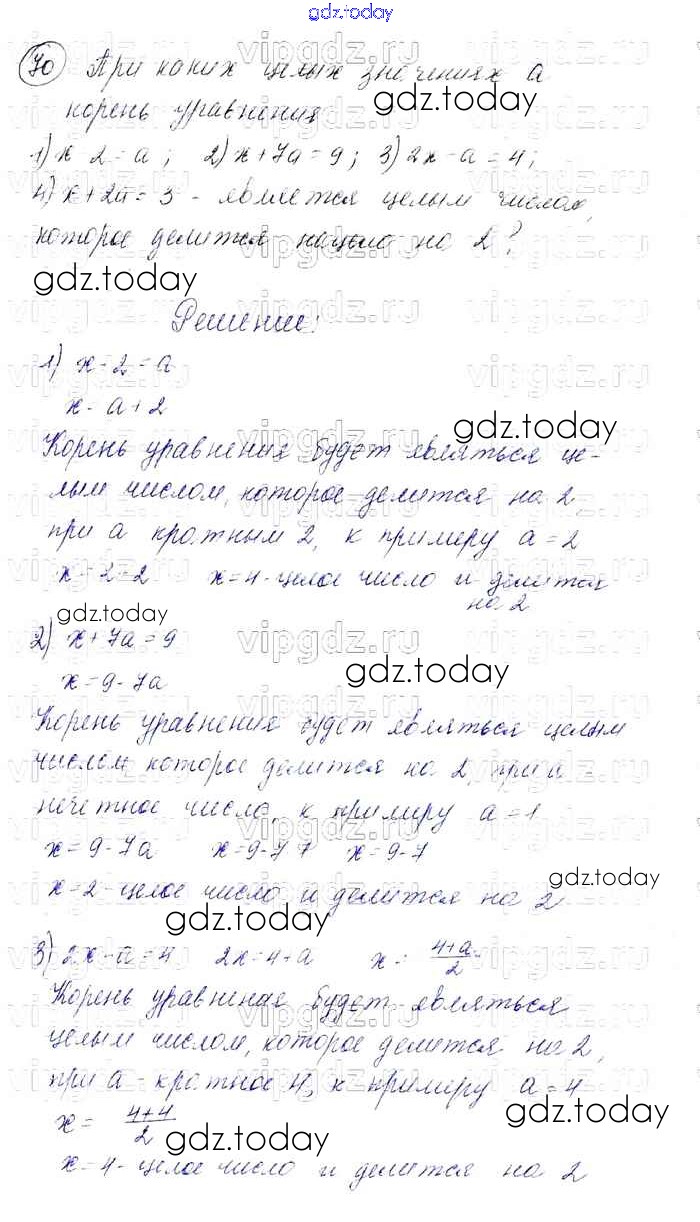 gdz.today
70 При каких целых значениях a
gdz.today
корень уравнения
1) x 2 = a; 2) x + 7a = 9; 3) 2x - a = 4;
4) x + 2a = 3 - является целым числом,
которое делится нацело на 2?
gdz.today
vipgdz.ru
Решение:
1) x - 2 = a
x - a + 2
gdz.today
Корень уравнения будет являться це-
лым числом, которое делится на 2,
при a кратным 2, к примеру a = 2
x - 2 = 2 x = 4 - целое число и делится
на 2
gdz.today
2) x + 7a = 9
vipgdz.ru
x = 9 - 7a
gdz.today
Корень уравнения будет являться целым
числом которое делится на 2, при a -
нечетное число, к примеру a = 1
x = 9 - 7a x = 9 - 7 1 x = 9 - 7
x = 2 - целое число и делится на 2
gdz.today
gdz.today
3) 2x - a = 4 2x = 4 + a x = 4+a/2
Корень уравнения будет являться
целым числом, которое делится на 2,
при a - кратное 4, к примеру a = 4
gdz.today
x = 4+4/2
gdz.today
x = 4 - целое число и делится на 2